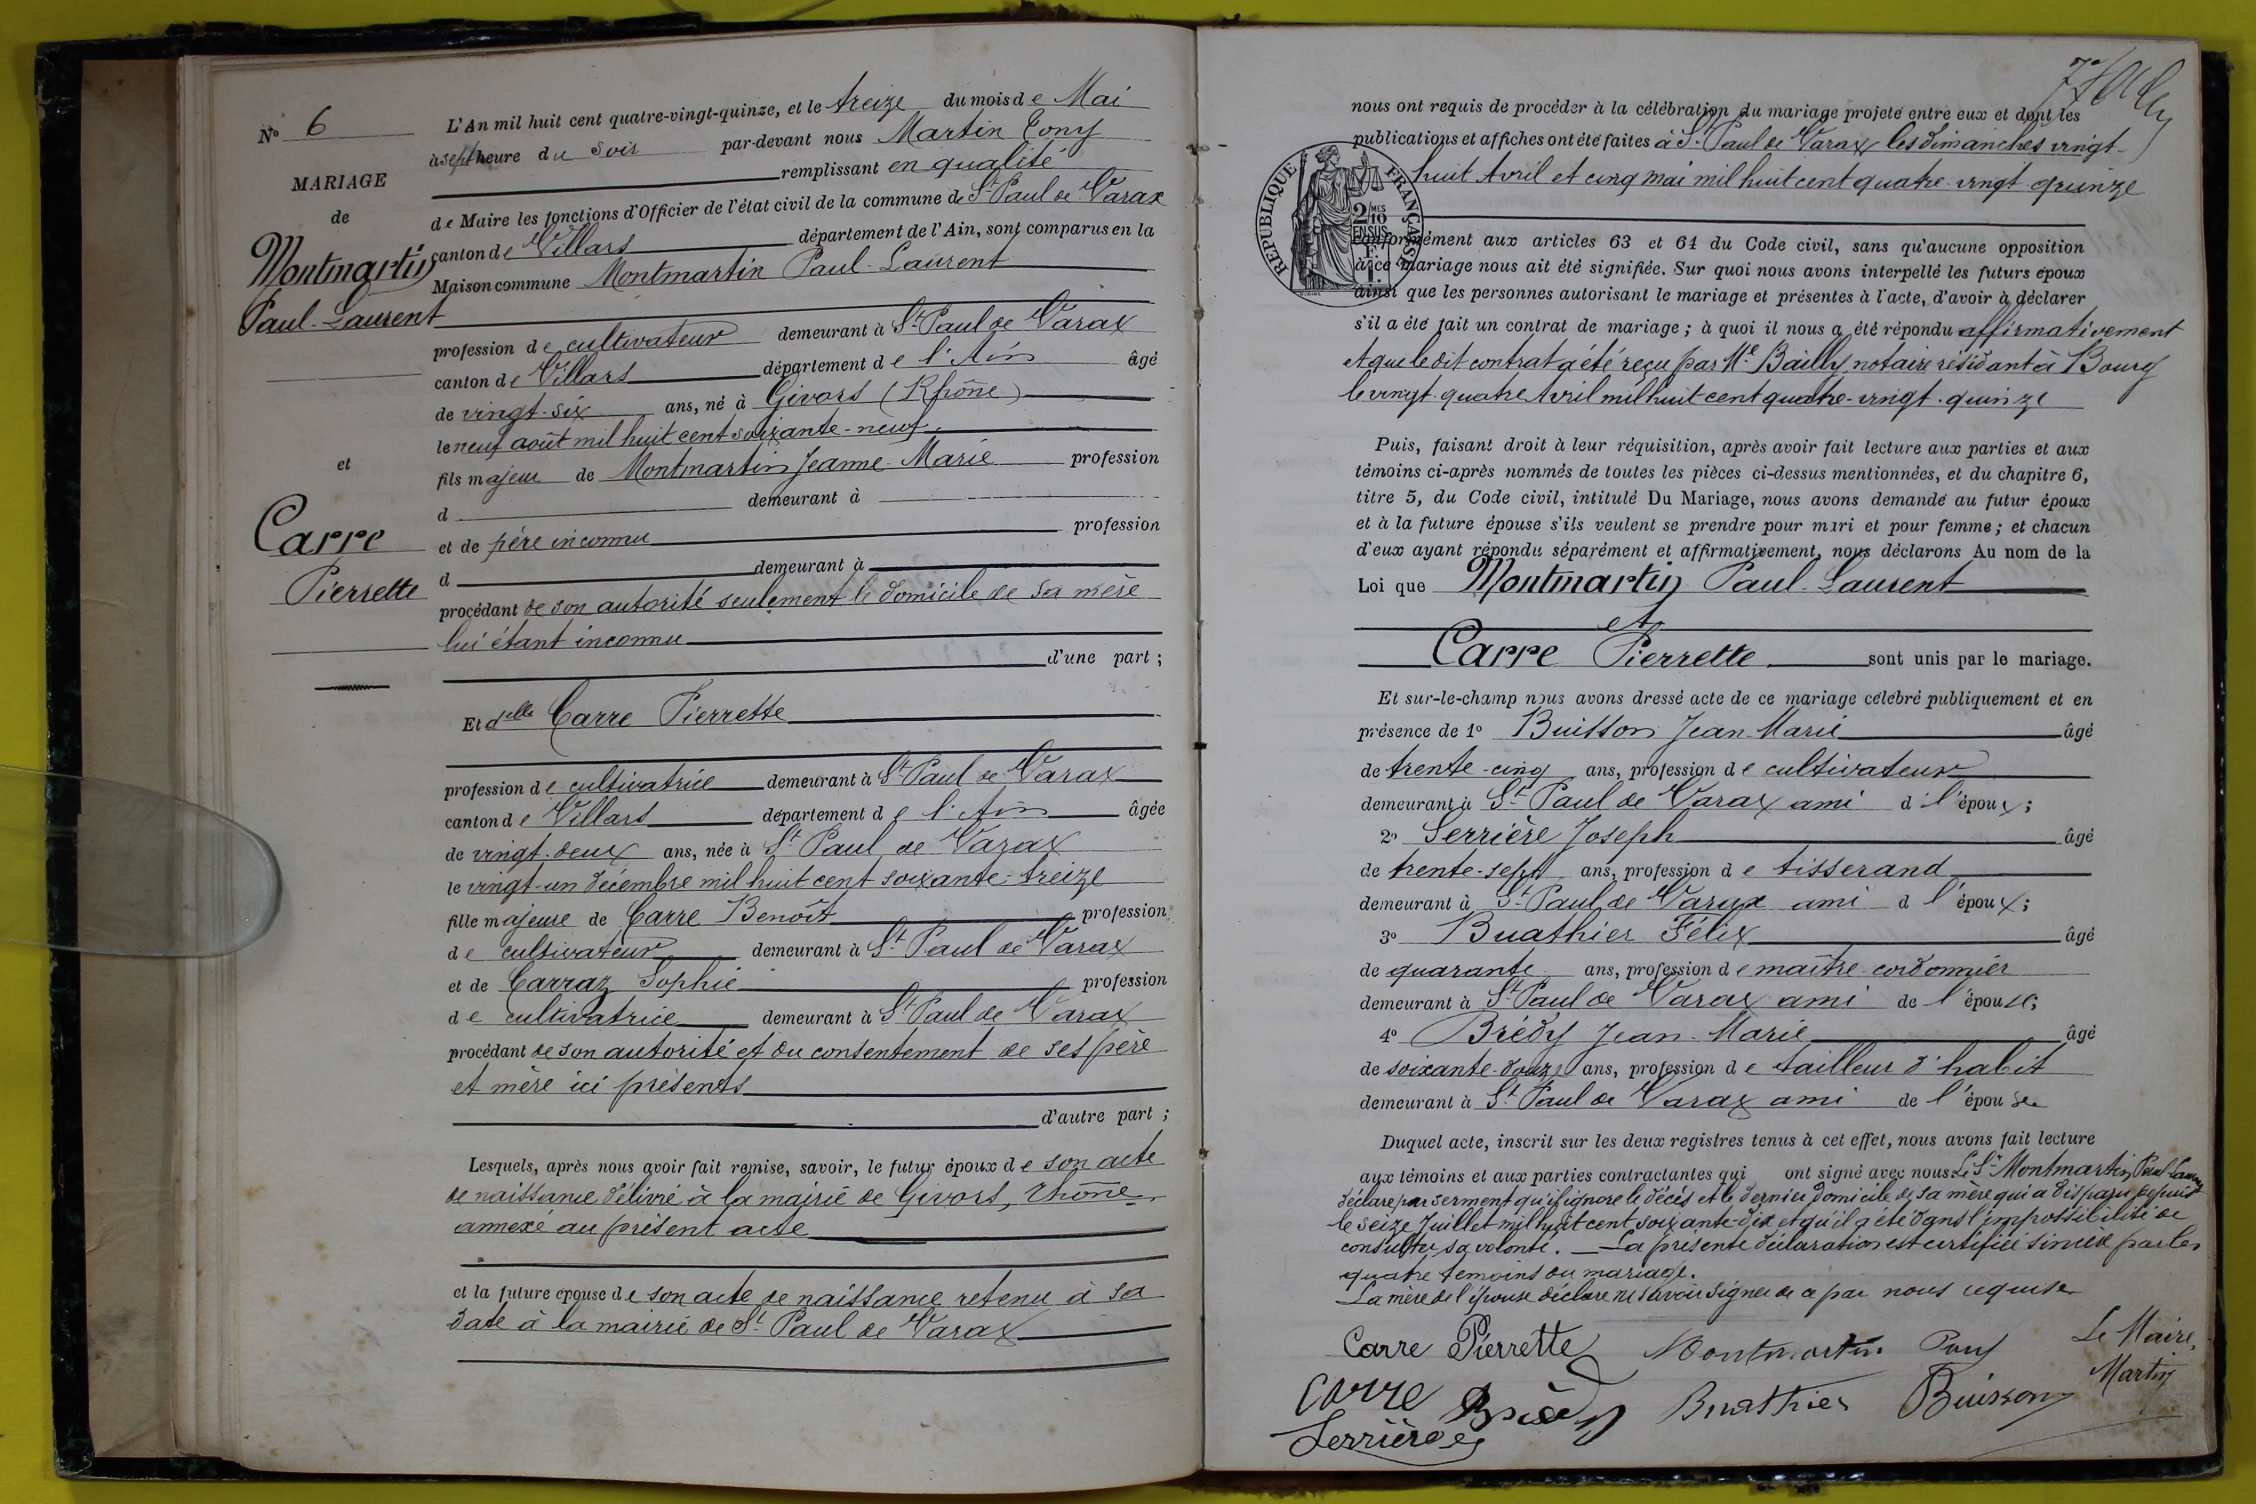 Nº 6
MARIAGE
de
Montmartin
Paul-Laurent
et
Carre
Pierrette
L'An mil huit cent quatre-vingt-quinze, et le treize du mois de Mai
à sept heure du soir par-devant nous Martin Tony
remplissant en qualité
de Maire les fonctions d'Officier de l'état civil de la commune de St Paul de Varax
canton de Villars département de l'Ain, sont comparus en la
Maison commune Montmartin Paul-Laurent
profession de cultivateur demeurant à St Paul de Varax
canton de Villars département de l'Ain âgé
de vingt-six ans, né à Givors (Rhône)
le neuf août mil huit cent soixante-neuf
fils majeur de Montmartin Jeanne-Marie profession
d demeurant à
et de père inconnu profession
d demeurant à
procédant de son autorité seulement le domicile de sa mère
lui étant inconnu
d'une part ;
Et delle Carre Pierrette
profession de cultivatrice demeurant à St Paul de Varax
canton de Villars département de l'Ain âgée
de vingt-deux ans, née à St Paul de Varax
le vingt-un décembre mil huit cent soixante-treize
fille majeure de Carre Benoît profession
de cultivateur demeurant à St Paul de Varax
et de Carraz Sophie profession
de cultivatrice demeurant à St Paul de Varax
procédant de son autorité et du consentement de ses père
et mère ici présents
d'autre part ;
Lesquels, après nous avoir fait remise, savoir, le futur époux de son acte
de naissance délivré à la mairie de Givors, Rhône,
annexé au présent acte
et la future épouse de son acte de naissance retenu à sa
date à la mairie de St Paul de Varax
nous ont requis de procéder à la célébration du mariage projeté entre eux et dont les
publications et affiches ont été faites à St Paul de Varax les dimanches vingt-
huit Avril et cinq mai mil huit cent quatre-vingt-quinze
RÉPUBLIQUE FRANÇAISE
2/10 MES
EN SUS
conformément aux articles 63 et 64 du Code civil, sans qu'aucune opposition
à ce mariage nous ait été signifiée. Sur quoi nous avons interpellé les futurs époux
ainsi que les personnes autorisant le mariage et présentes à l'acte, d'avoir à déclarer
s'il a été fait un contrat de mariage ; à quoi il nous a été répondu affirmativement
et que le dit contrat a été reçu par Me Bailly notaire résidant à Bourg
le vingt-quatre Avril mil huit cent quatre-vingt-quinze
Puis, faisant droit à leur réquisition, après avoir fait lecture aux parties et aux
témoins ci-après nommés de toutes les pièces ci-dessus mentionnées, et du chapitre 6,
titre 5, du Code civil, intitulé Du Mariage, nous avons demandé au futur époux
et à la future épouse s'ils veulent se prendre pour mari et pour femme ; et chacun
d'eux ayant répondu séparément et affirmativement, nous déclarons Au nom de la
Loi que Montmartin Paul-Laurent
et
Carre Pierrette sont unis par le mariage.
Et sur-le-champ nous avons dressé acte de ce mariage célébré publiquement et en
présence de 1º Buisson Jean-Marie âgé
de trente-cinq ans, profession de cultivateur
demeurant à St Paul de Varax ami d l'époux ;
2º Serrière Joseph âgé
de trente-sept ans, profession de tisserand
demeurant à St Paul de Varax ami d l'époux ;
3º Buathier Félix âgé
de quarante ans, profession de maître-cordonnier
demeurant à St Paul de Varax ami de l'épouse ;
4º Brédy Jean-Marie âgé
de soixante-douze ans, profession de tailleur d'habit
demeurant à St Paul de Varax ami de l'épouse
Duquel acte, inscrit sur les deux registres tenus à cet effet, nous avons fait lecture
aux témoins et aux parties contractantes qui ont signé avec nous. Le Sr Montmartin Paul-Laurent
déclare par serment qu'il ignore le décès et le dernier domicile de sa mère qui a disparu depuis
le seize Juillet mil huit cent soixante-dix et qu'il a été dans l'impossibilité de
consulter sa volonté. La présente déclaration est certifiée sincère par les
quatre témoins du mariage.
La mère de l'épouse déclare ne savoir signer de ce par nous requise
Carre Pierrette Montmartin Paul Le Maire,
Carre Brédy Buathier Buisson Martin
Serrière